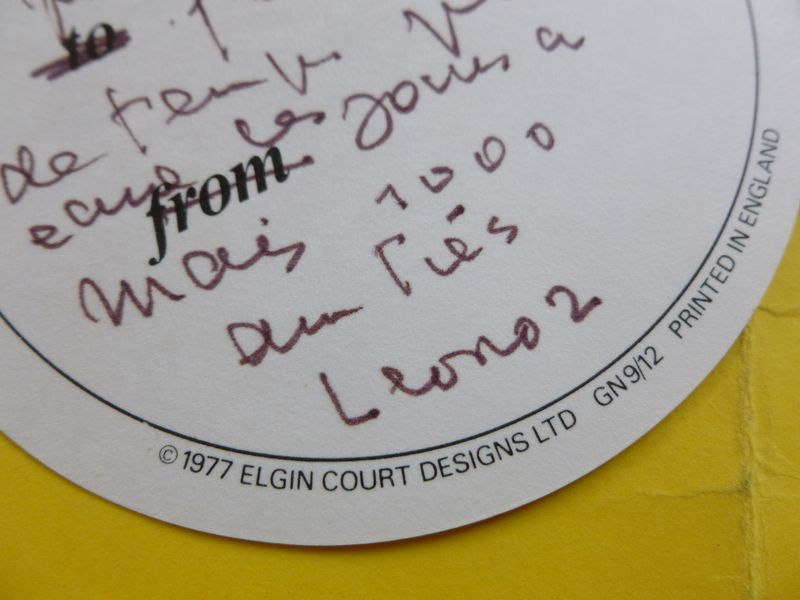 to
de temps
ces jours à
from
mais 1000
amitiés
Leonor
© 1977 ELGIN COURT DESIGNS LTD GN9/12 PRINTED IN ENGLAND